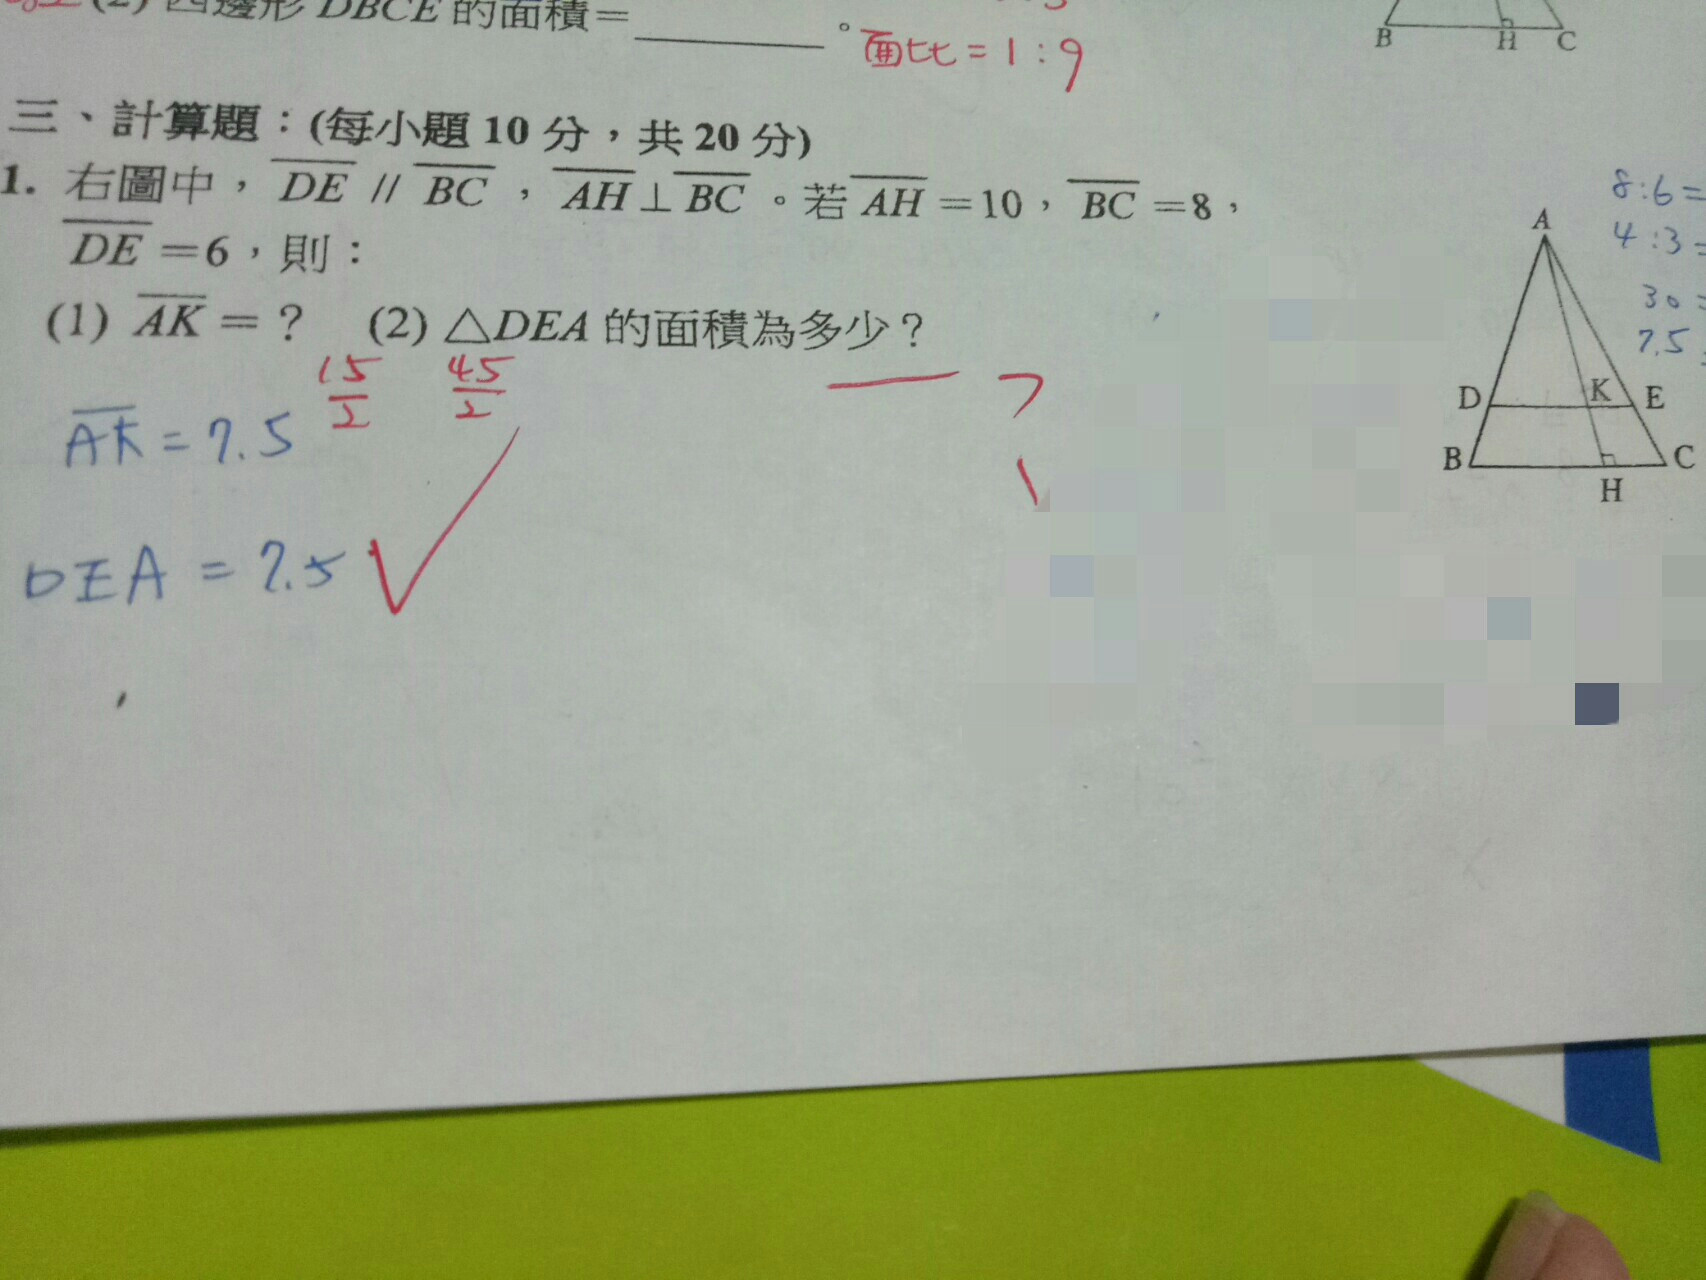 (2) 四邊形 DBCE 的面積＝________。
面比 = 1 : 9
B H C
三、計算題：(每小題 10 分，共 20 分)
1. 右圖中，DE // BC，AH⊥BC。若 AH＝10，BC＝8，
DE＝6，則：
(1) AK＝？ (2) △DEA 的面積為多少？
15/2 45/2
AK = 7.5
DEA = 7.5
8:6=
4:3=
30=
7.5
A
D K E
B C
H